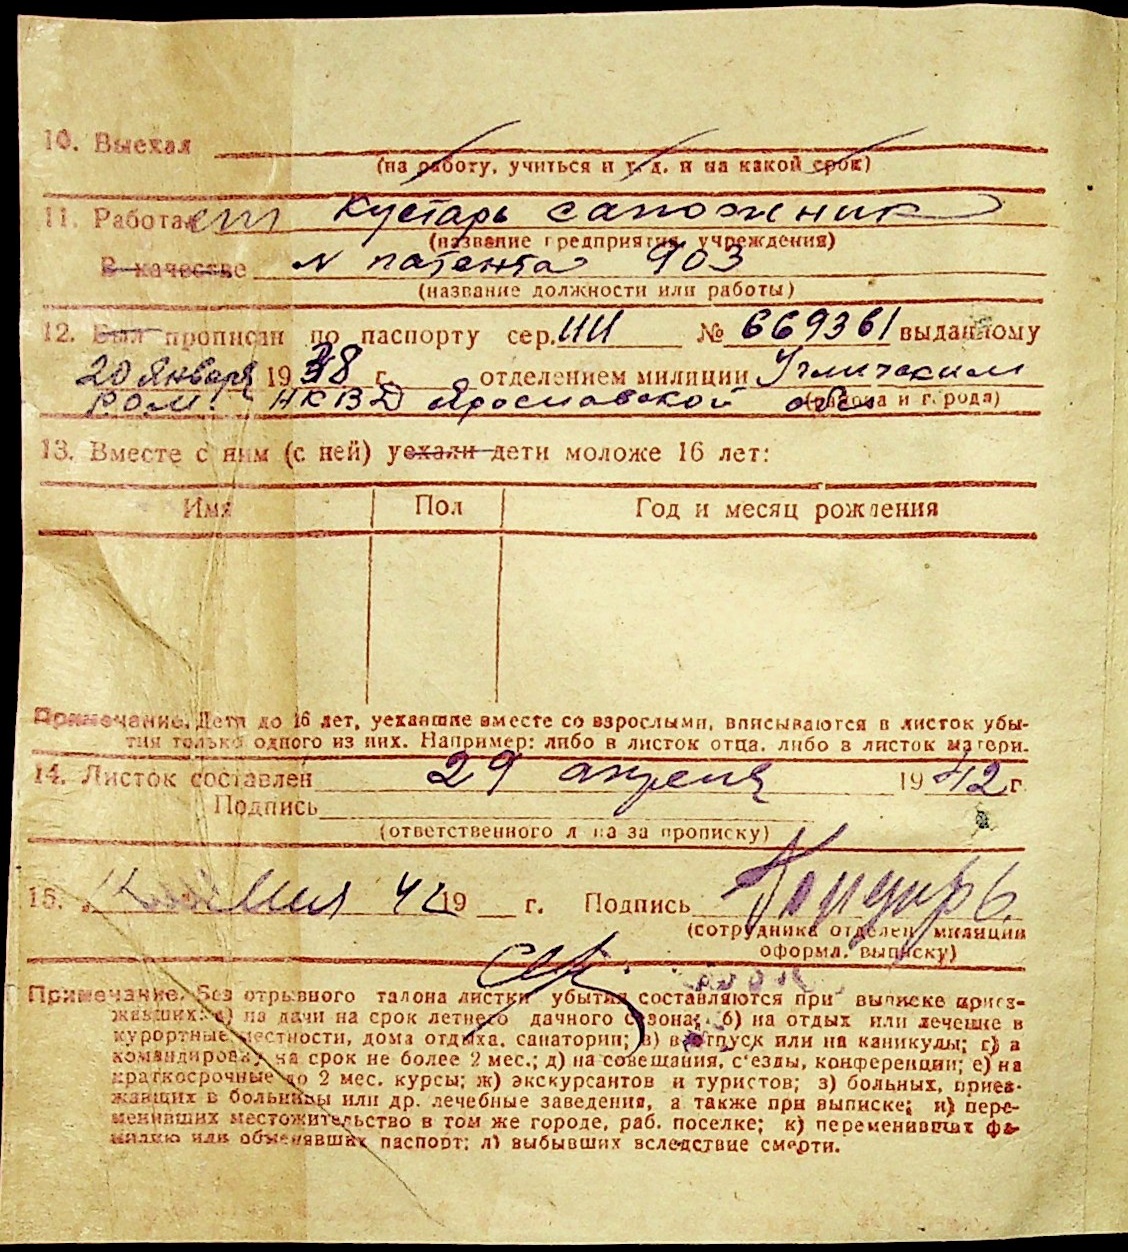 10. Выехал
(на работу, учиться и т. д. и на какой срок)
11. Работает Кустарь сапожник
(название предприятия, учреждения)
В качестве N патента 903
(название должности или работы)
12. Был прописан по паспорту сер. ИИ № 669361 выданному
20 января 1938 г. отделением милиции Угличским
РОМ. НКВД Ярославской обл.
(района и города)
13. Вместе с ним (с ней) уехали дети моложе 16 лет:
Имя Пол Год и месяц рождения
Примечание. Дети до 16 лет, уехавшие вместе со взрослыми, вписываются в листок убы-
тия только одного из них. Например: либо в листок отца, либо в листок матери.
14. Листок составлен 29 апреля 1942 г.
Подпись
(ответственного лица за прописку)
15. мая 42 19 г. Подпись
(сотрудника отделен. милиции
оформл. выписку)
Примечание. Без отрывного талона листки убытия составляются при выписке приез-
жавших: а) на дачи на срок летнего дачного сезона; б) на отдых или лечение в
курортные местности, дома отдыха, санатории; в) в отпуск или на каникулы; г) в
командировку на срок не более 2 мес.; д) на совещания, с'езды, конференции; е) на
краткосрочные до 2 мес. курсы; ж) экскурсантов и туристов; з) больных, приез-
жающих в больницы или др. лечебные заведения, а также при выписке; и) пере-
менивших местожительство в том же городе, раб. поселке; к) переменивших фа-
милию или обменявших паспорт; л) выбывших вследствие смерти.